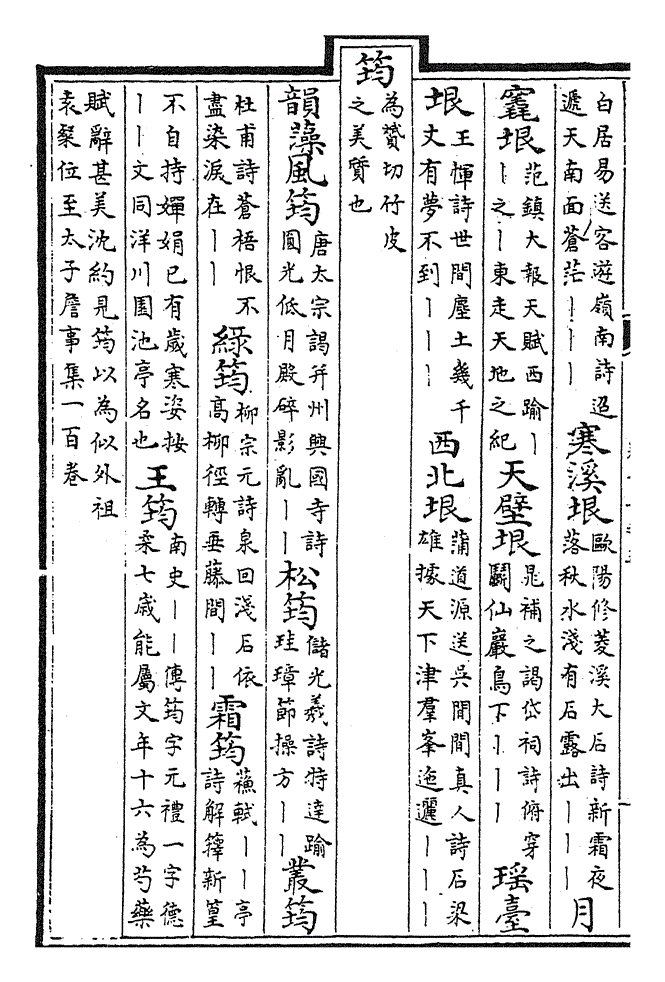 白居易送客遊嶺南詩迢
遞天南面蒼茫丨丨丨
寒溪垠
歐陽修菱溪大石詩新霜夜
落秋水淺有石露出丨丨丨
月
竁垠
范鎮大報天賦西踰丨
丨之丨東走天地之紀
天壁垠
晁補之謁岱祠詩俯穿
鬬仙巖鳥下丨丨丨
瑶臺
垠
王惲詩世間塵土幾千
丈有夢不到丨丨丨
西北垠
蒲道源送吳閒閒真人詩石梁
雄據天下津羣峯迤邐丨丨丨
筠
為贇切竹皮
之美質也
韻藻風筠
唐太宗謁并州興國寺詩
圓光低月殿碎影亂丨丨
松筠
儲光羲詩特達踰
珪璋節操方丨丨
叢筠
杜甫詩蒼梧恨不
盡染淚在丨丨
綠筠
柳宗元詩泉回淺石依
高柳徑轉垂藤間丨丨
霜筠
蘇軾丨丨亭
詩解籜新篁
不自持嬋娟已有歲寒姿按
丨丨文同洋川園池亭名也
王筠
南史丨丨傳筠字元禮一字德
柔七歲能屬文年十六為芍藥
賦辭甚美沈約見筠以為似外祖
袁粲位至太子詹事集一百卷